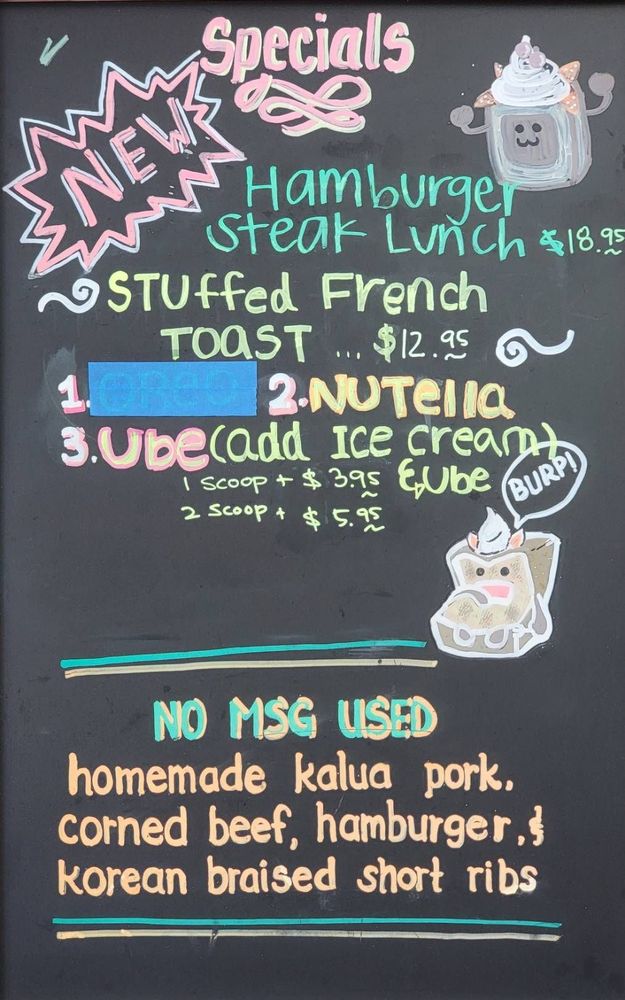 Specials
NEW
Hamburger
Steak Lunch $18.95
STUffed French
TOAST ... $12.95
1. OREO 2. NUTella
3. Ube (add Ice cream)
1 Scoop + $3.95 & Ube
2 Scoop + $5.95
BURP!
NO MSG USED
homemade kalua pork,
corned beef, hamburger, &
korean braised short ribs